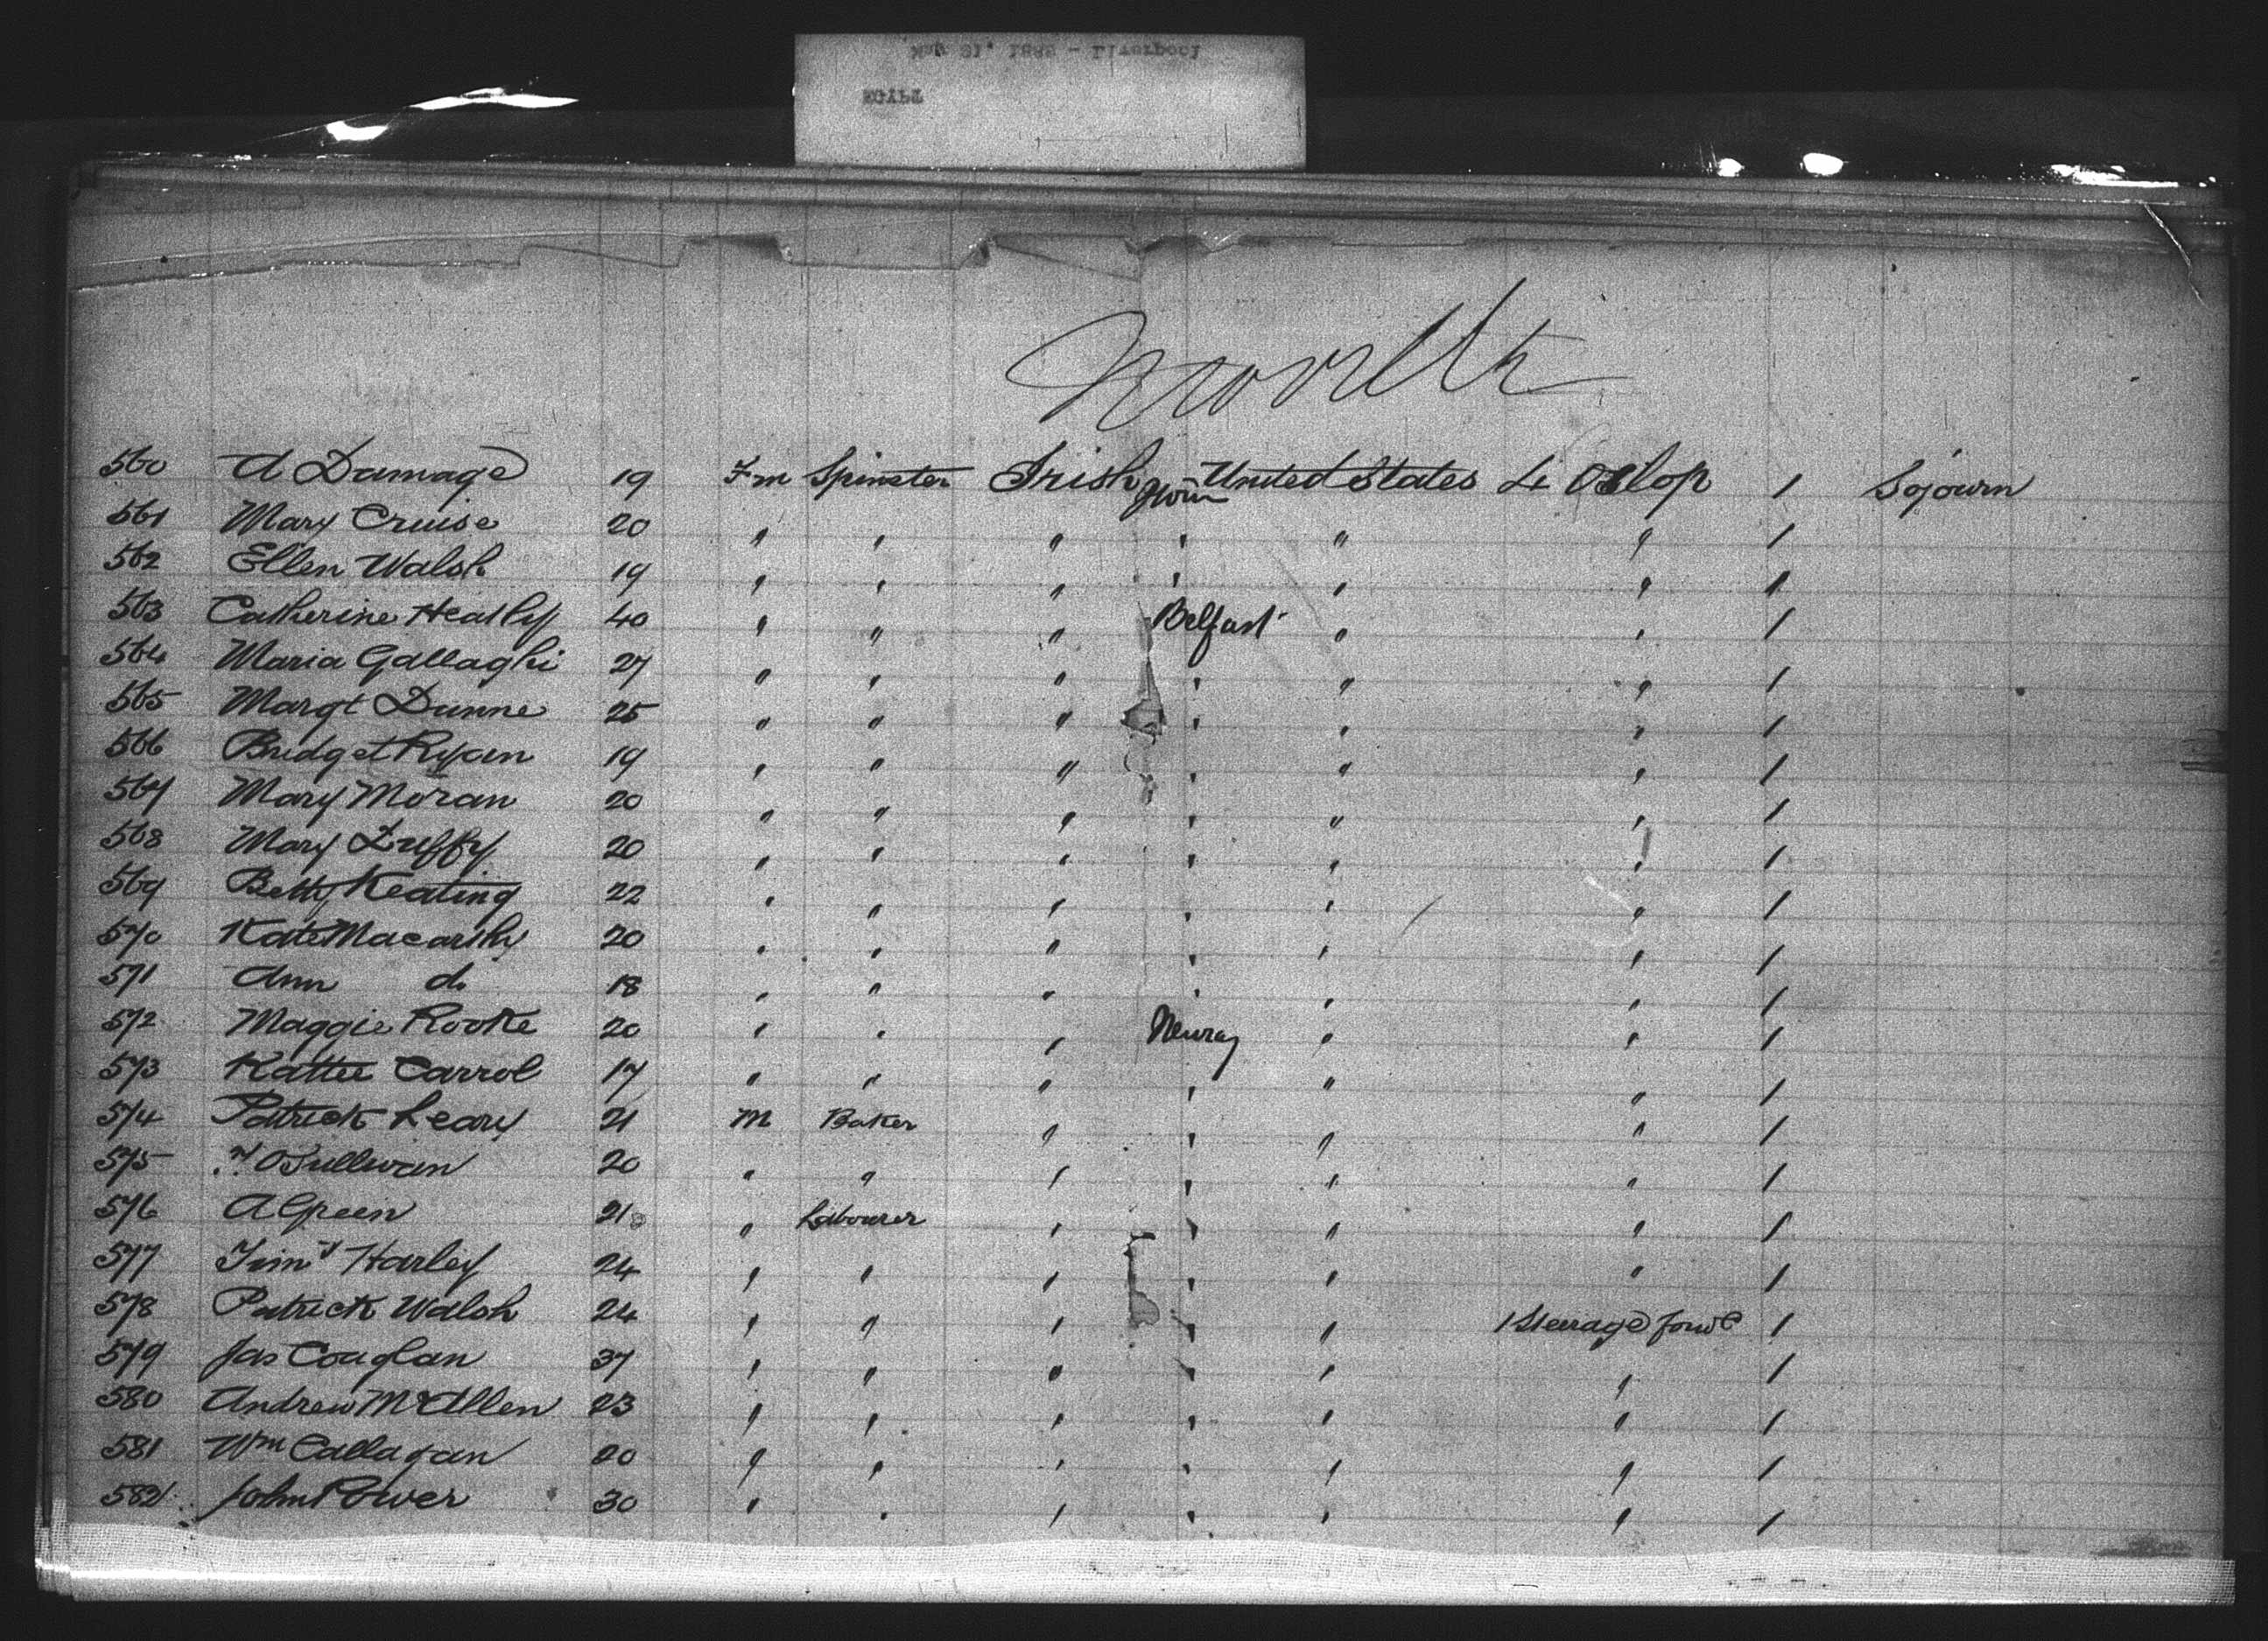 EGYPT
560 A Damage 19 Fm Spinster Irish United States L Oslop / Sojourn
561 Mary Cruise 20 " " " " " " /
562 Ellen Walsh 19 " " " " " " /
563 Catherine Heathy 40 " " " Belfast " " /
564 Maria Gallaghi 27 " " " " " " /
565 Margt Dunne 25 " " " " " " /
566 Bridget Ryan 19 " " " " " " /
567 Mary Moran 20 " " " " " " /
568 Mary Duffy 20 " " " " " " /
569 Betty Keating 22 " " " " " " /
570 Kate Macarthy 20 " " " " " " /
571 Ann do 18 " " " " " " /
572 Maggie Rooke 20 " " " " " /
573 Kattie Carrol 17 " " " " " " /
574 Patrick Leary 21 M Baker " " " " /
575 O'Sullivan 20 " " " " " " /
576 A Green 21 " Labourer " " " " /
577 Timy Harley 24 " " " " " " /
578 Patrick Walsh 24 " " " " " 1 Steerage forwd /
579 Jas Coaglan 37 " " " " " " /
580 Andrew McAllen 23 " " " " " " /
581 Wm Callagan 20 " " " " " " /
582 John Power 30 " " " " " " /